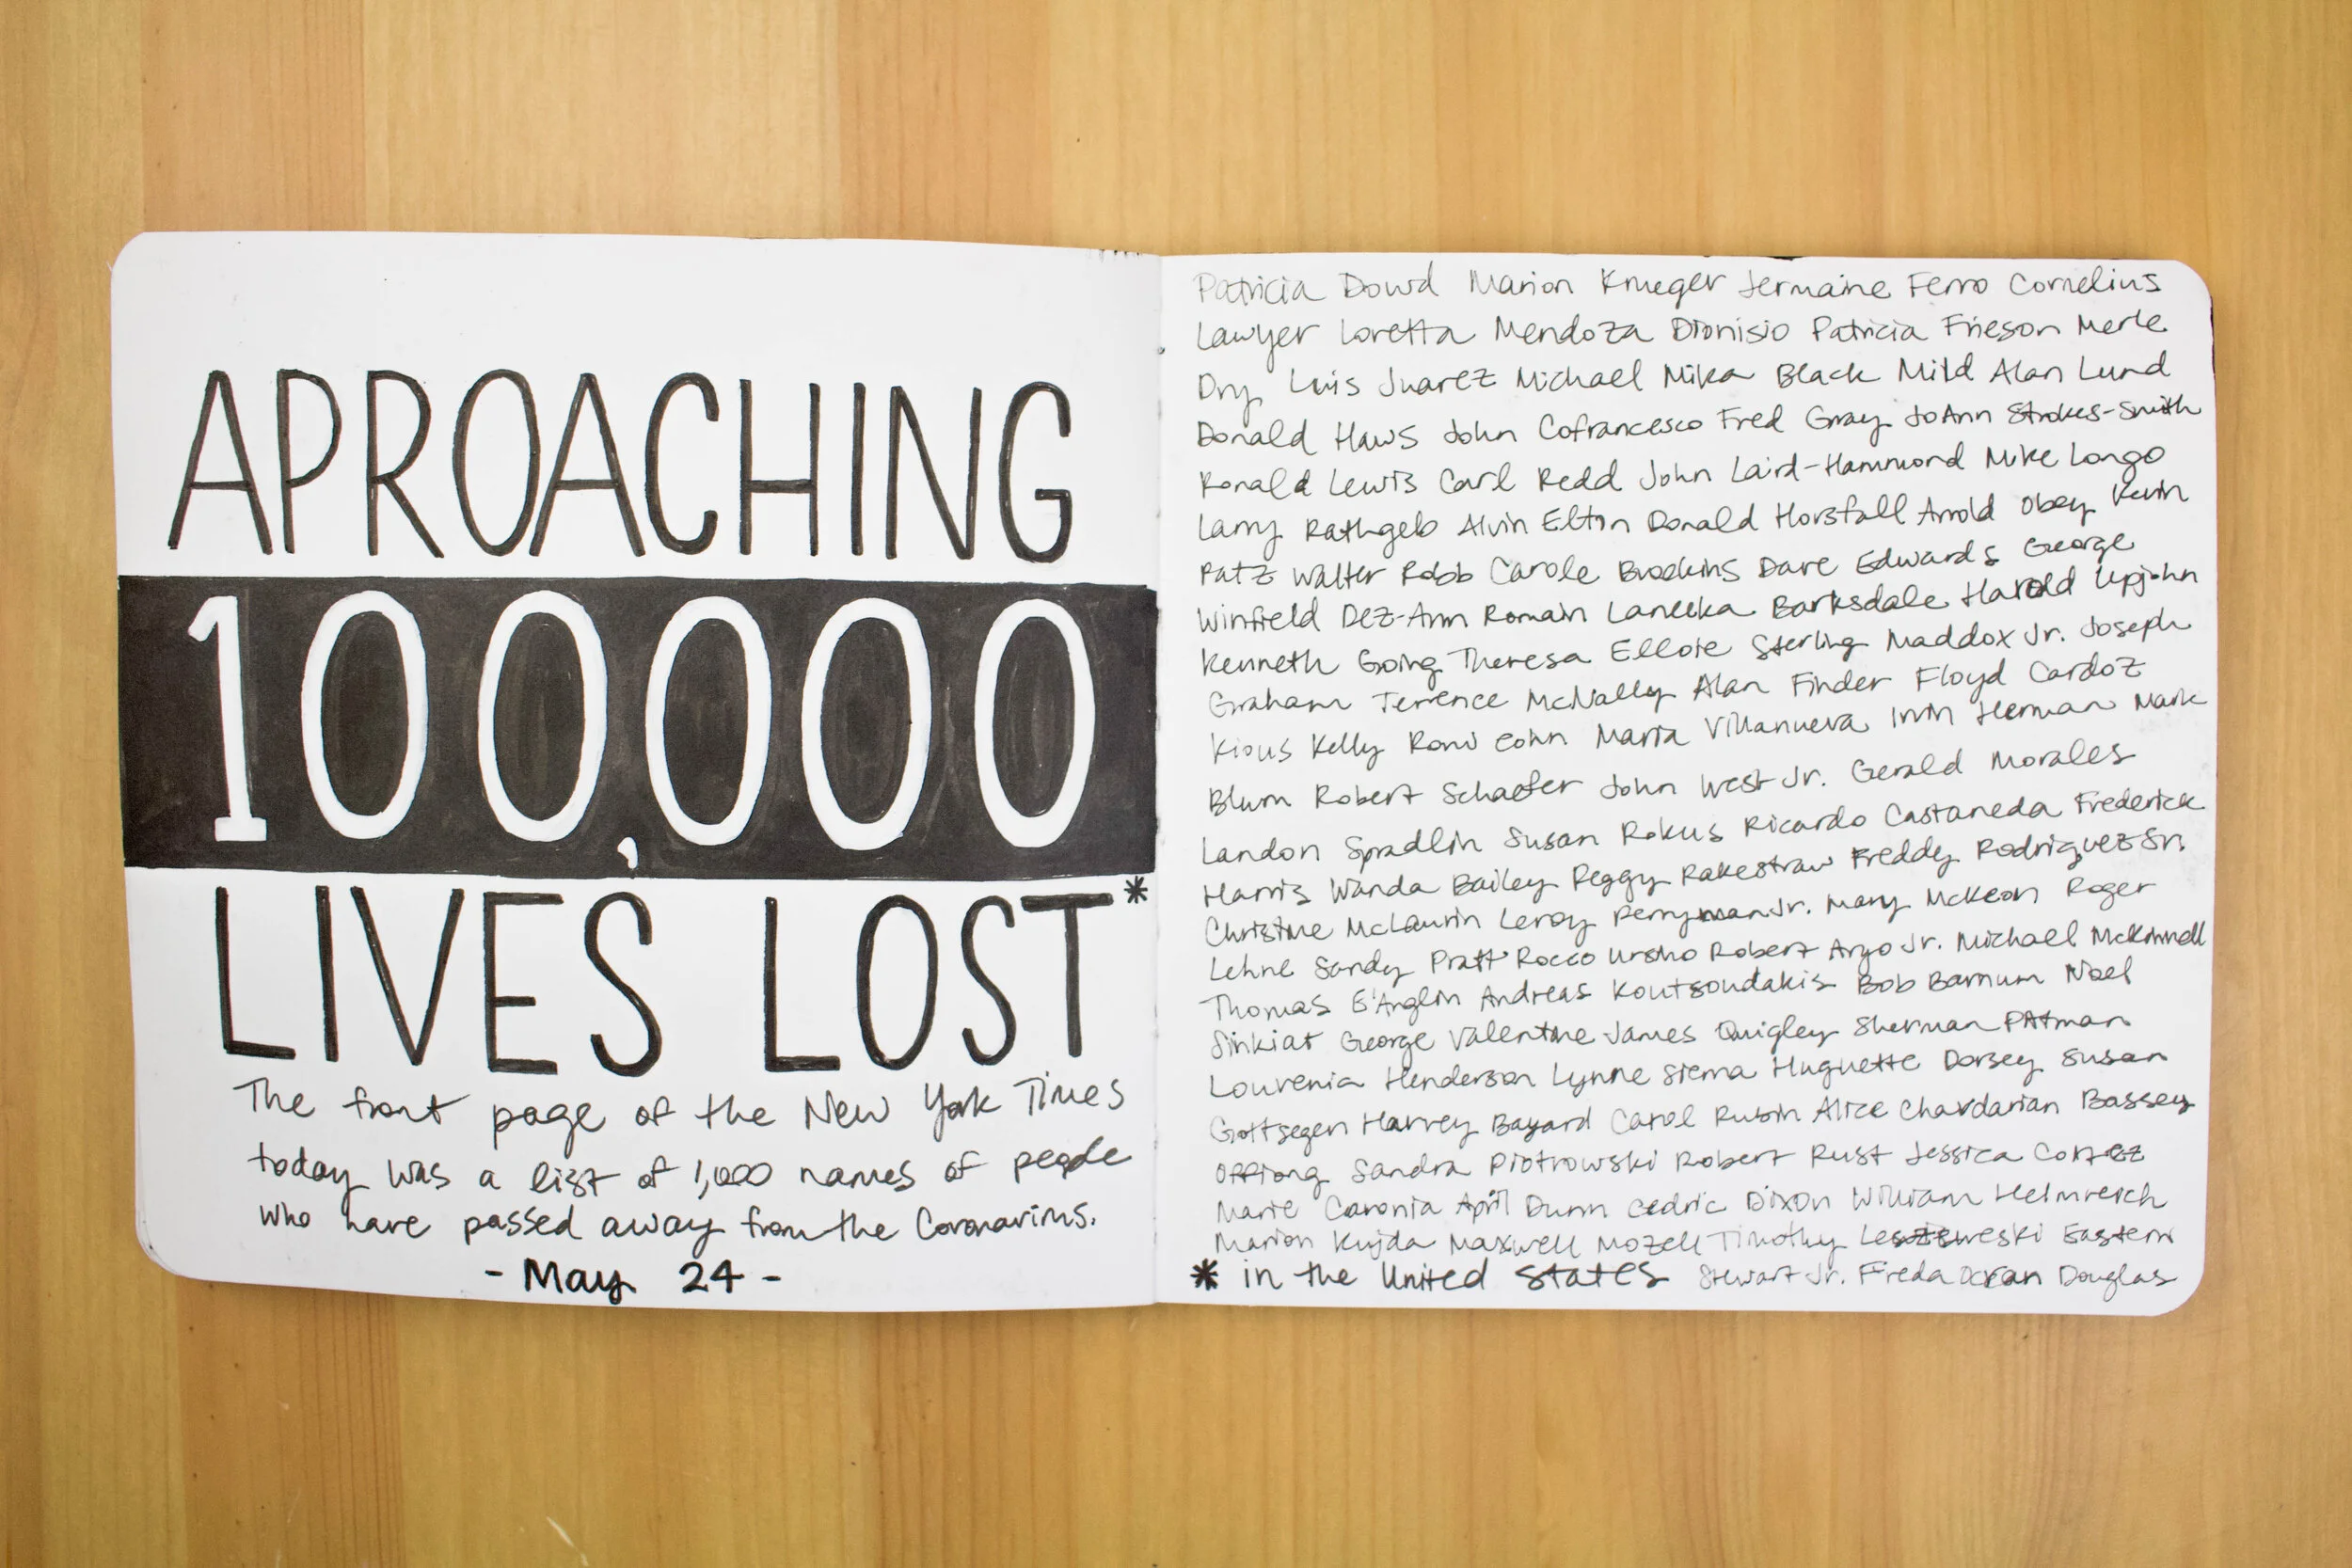 APROACHING
100,000
LIVES LOST*
The front page of the New York Times
today was a list of 1,000 names of people
who have passed away from the Coronavirus.
- May 24 -
Patricia Dowd Marion Krueger Jermaine Ferro Cornelius
Lawyer Loretta Mendoza Dionisio Patricia Frieson Merle
Dry Luis Juarez Michael Mika Black Mild Alan Lund
Donald Haws John Cofrancesco Fred Gray JoAnn Strokes-Smith
Ronald Lewis Carl Redd John Laird-Hammond Mike Longo
Larry Rathgeb Alvin Elton Donald Horsfall Arnold Obey Kevin
Patz Walter Robb Carole Brookins Dave Edwards George
Winfield Dez-Ann Romain Laneeka Barksdale Harold Upjohn
Kenneth Going Theresa Elloie Sterling Maddox Jr. Joseph
Graham Terrence McNally Alan Finder Floyd Cardoz
Kious Kelly Romi Cohn Maria Villanueva Irvin Herman Mark
Blum Robert Schaefer John West Jr. Gerald Morales
Landon Spradlin Susan Rokus Ricardo Castaneda Frederick
Harris Wanda Bailey Peggy Rakestraw Freddy Rodriguez Sr.
Christine McLaurin Leroy Perryman Jr. Mary McKeon Roger
Lehne Sandy Pratt Rocco Ursino Robert Argo Jr. Michael McKinnell
Thomas E'Anglin Andreas Koutsoudakis Bob Barnum Noel
Sinkiat George Valentine James Quigley Sherman PAtman
Louvenia Henderson Lynne Sierra Huguette Dorsey Susan
Gottsegen Harvey Bayard Carol Rubin Alice Chavdarian Bassey
Offiong Sandra Piotrowski Robert Rust Jessica Cortez
Marie Caronia April Dunn Cedric Dixon William Helmreich
Marion Kujda Maxwell Mozell Timothy Eastern
* in the United States Stewart Jr. Freda Ocran Douglas